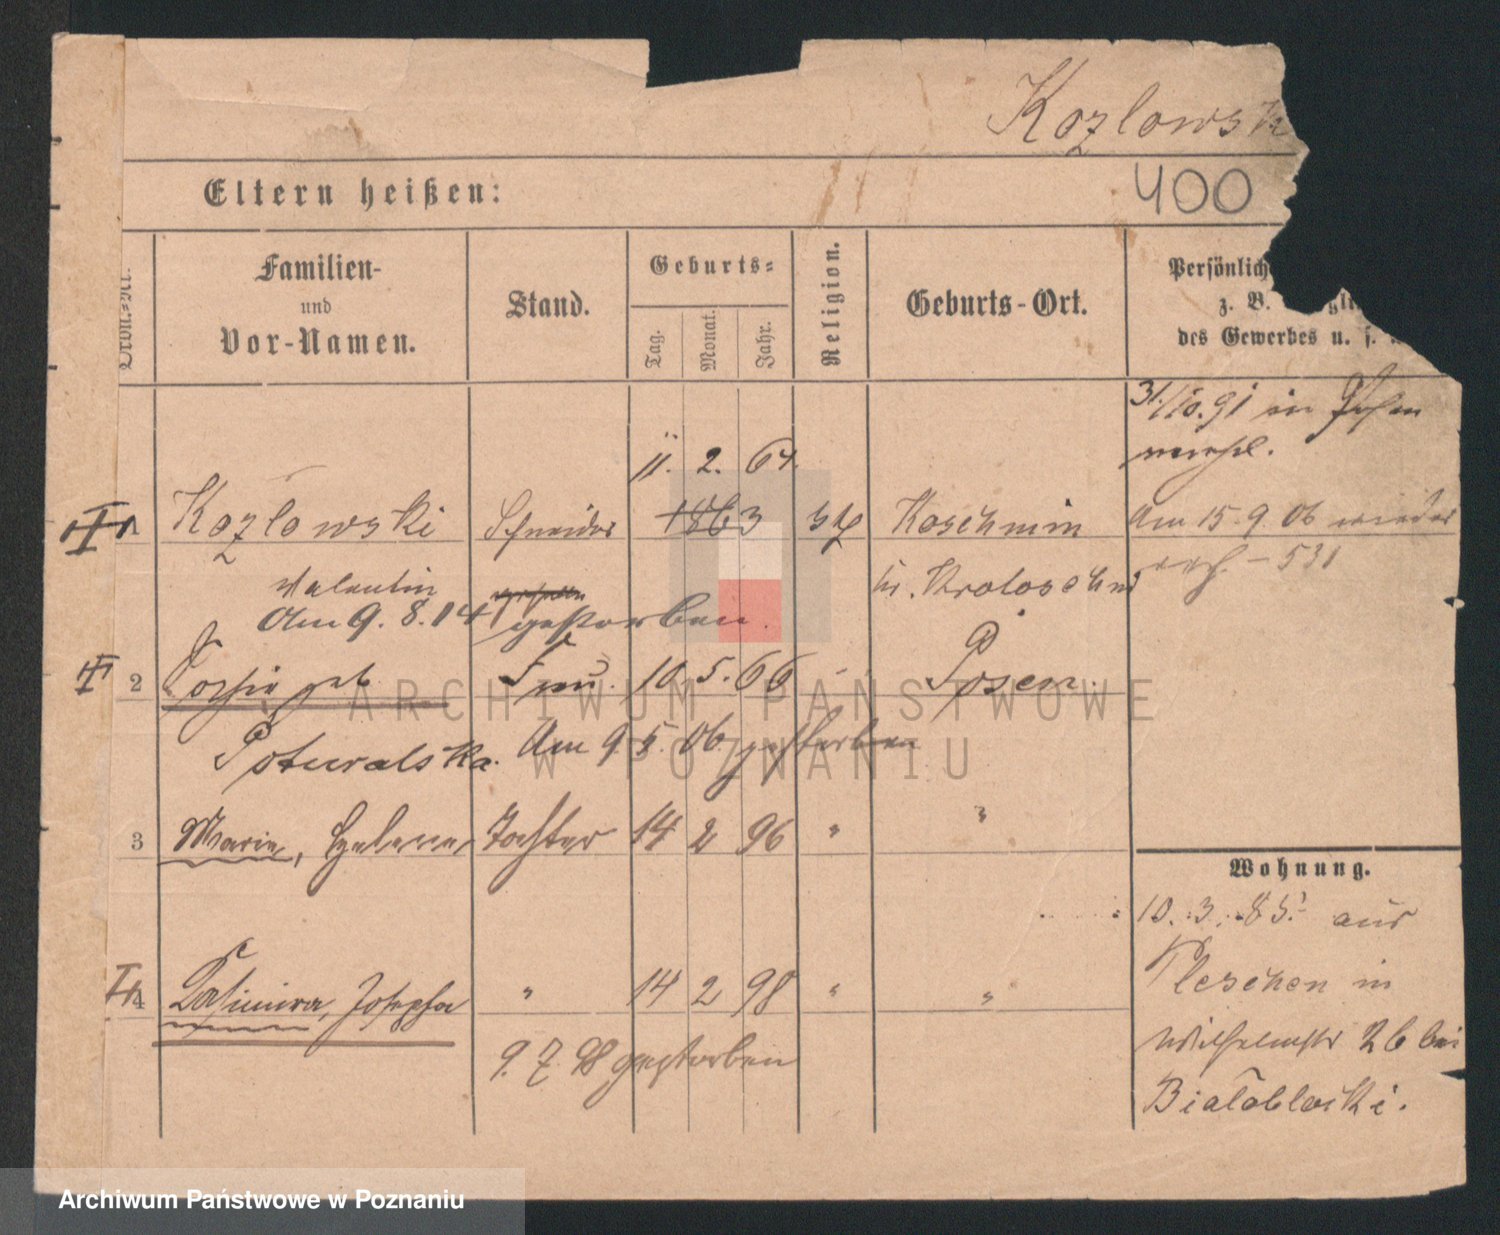 Kozlowsk
400
Eltern heißen:
Ordn.-Nr.
Familien-
und
Vor-Namen.
Stand.
Geburts-
Tag.
Monat.
Jahr.
Religion.
Geburts-Ort.
Persönlich
z. B.
des Gewerbes u. s.
31./10.91 in Posen
11. 2. 64.
1 Kozlowski Schneider 1863 Koschmin Am 15.9.06 wieder
Valentin Kr. Krotoschin
531
Am 9.8.14 gestorben.
2 geb. Frau 10. 5. 66 Posen
Poturalska. Am 9.5.06 gestorben
3 Marie, Helene, Tochter 14 2 96 " "
Wohnung.
10.3.85. aus
Pleschen in
4 Kasimira, Josepha " 14 2 98 " "
Wilhelmstr 26 bei
9.7.98 gestorben
Bialobloski.
ARCHIWUM PAŃSTWOWE
W POZNANIU
Archiwum Państwowe w Poznaniu